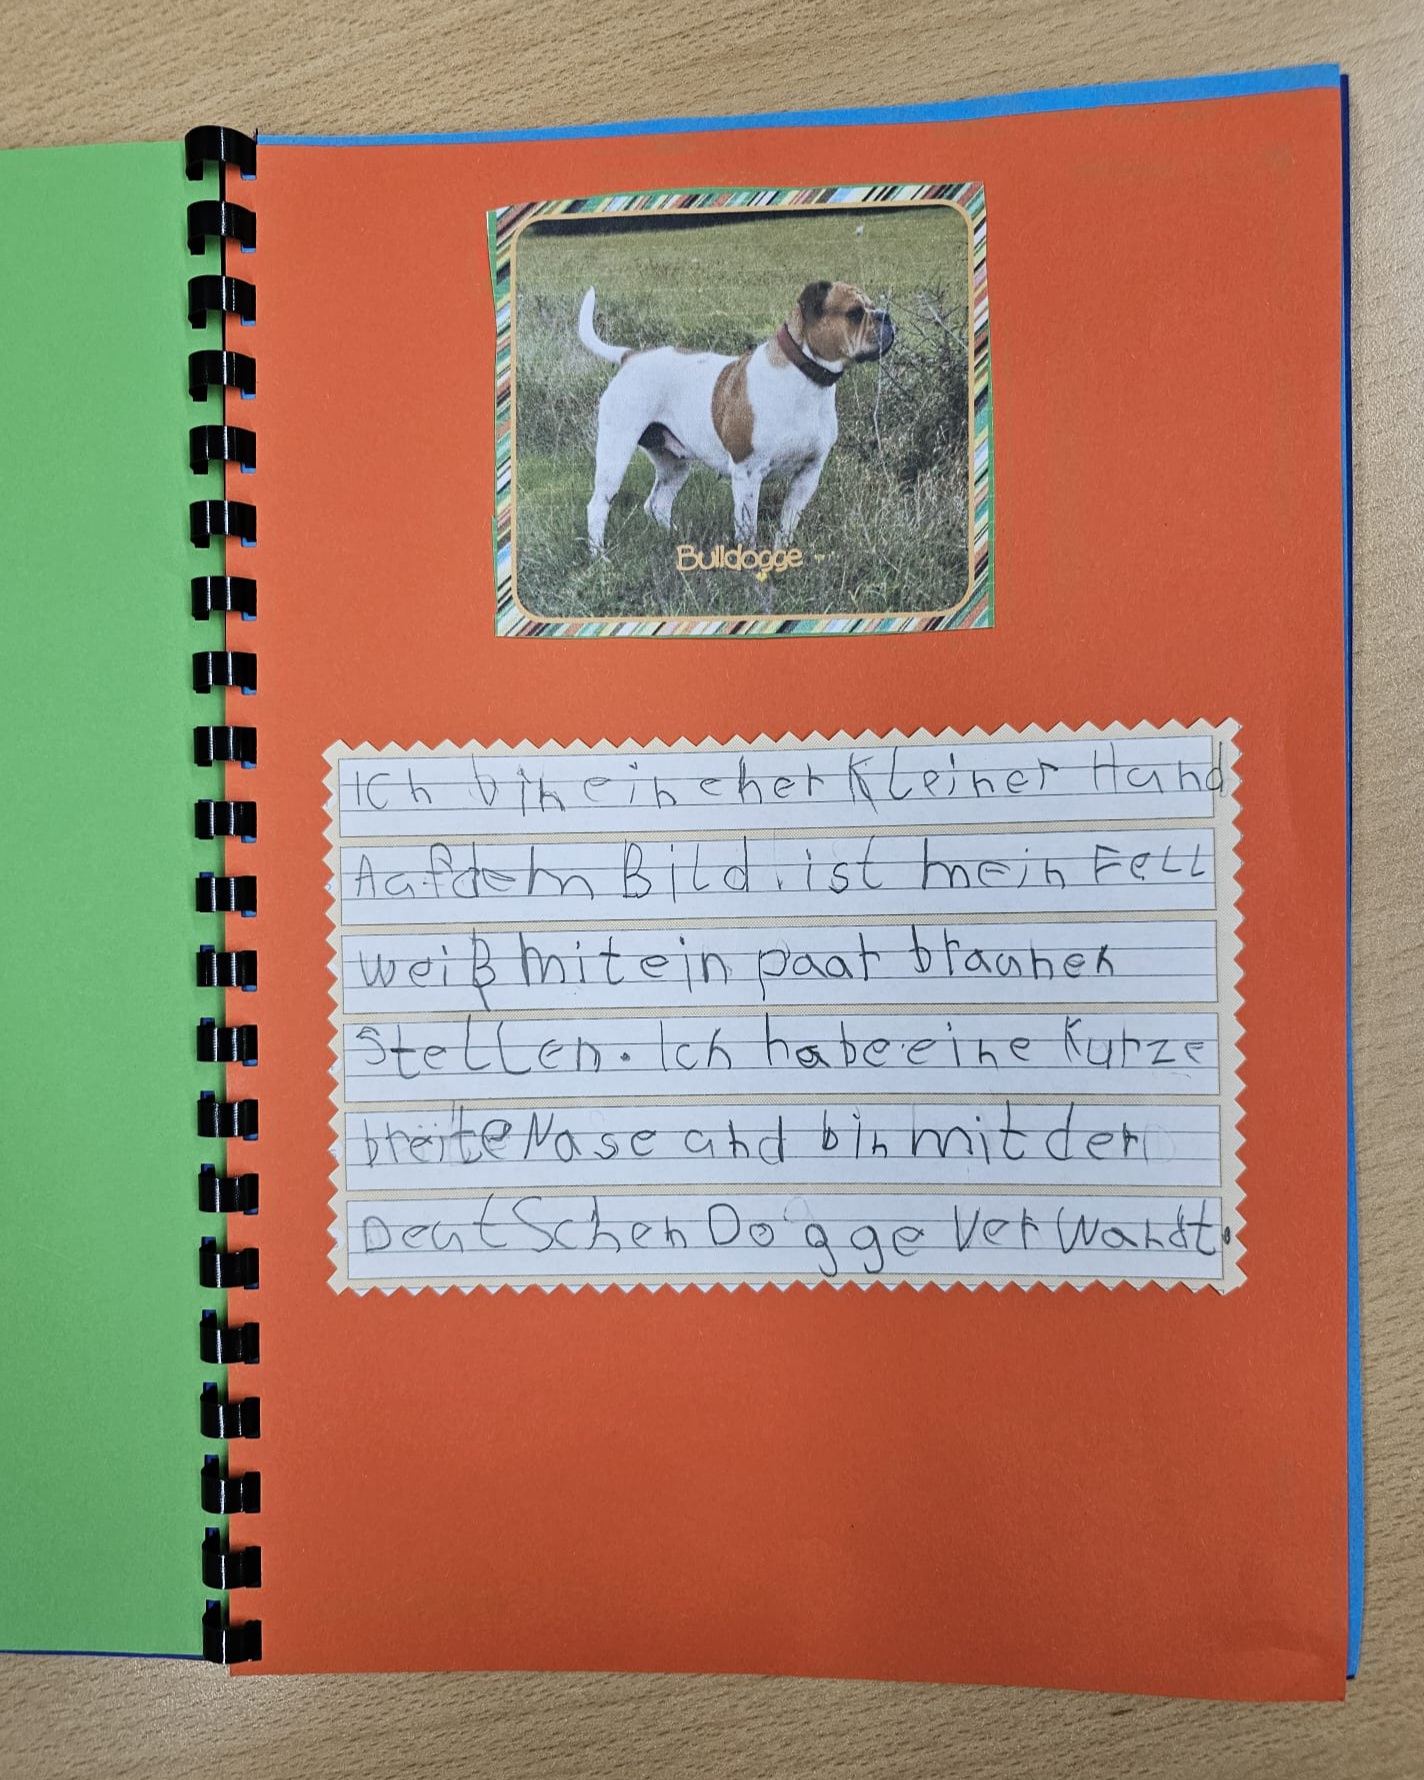 Bulldogge
Ich bin ein eher kleiner Hund
Auf dem Bild ist mein Fell
weiß mit ein paar braunen
Stellen. Ich habe eine kurze
breite Nase und bin mit der
Deutschen Dogge verwandt.